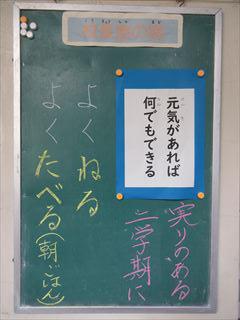 元気があれば
何でもできる
実りのある
二学期に
よくねる
よくたべる(朝ごはん)